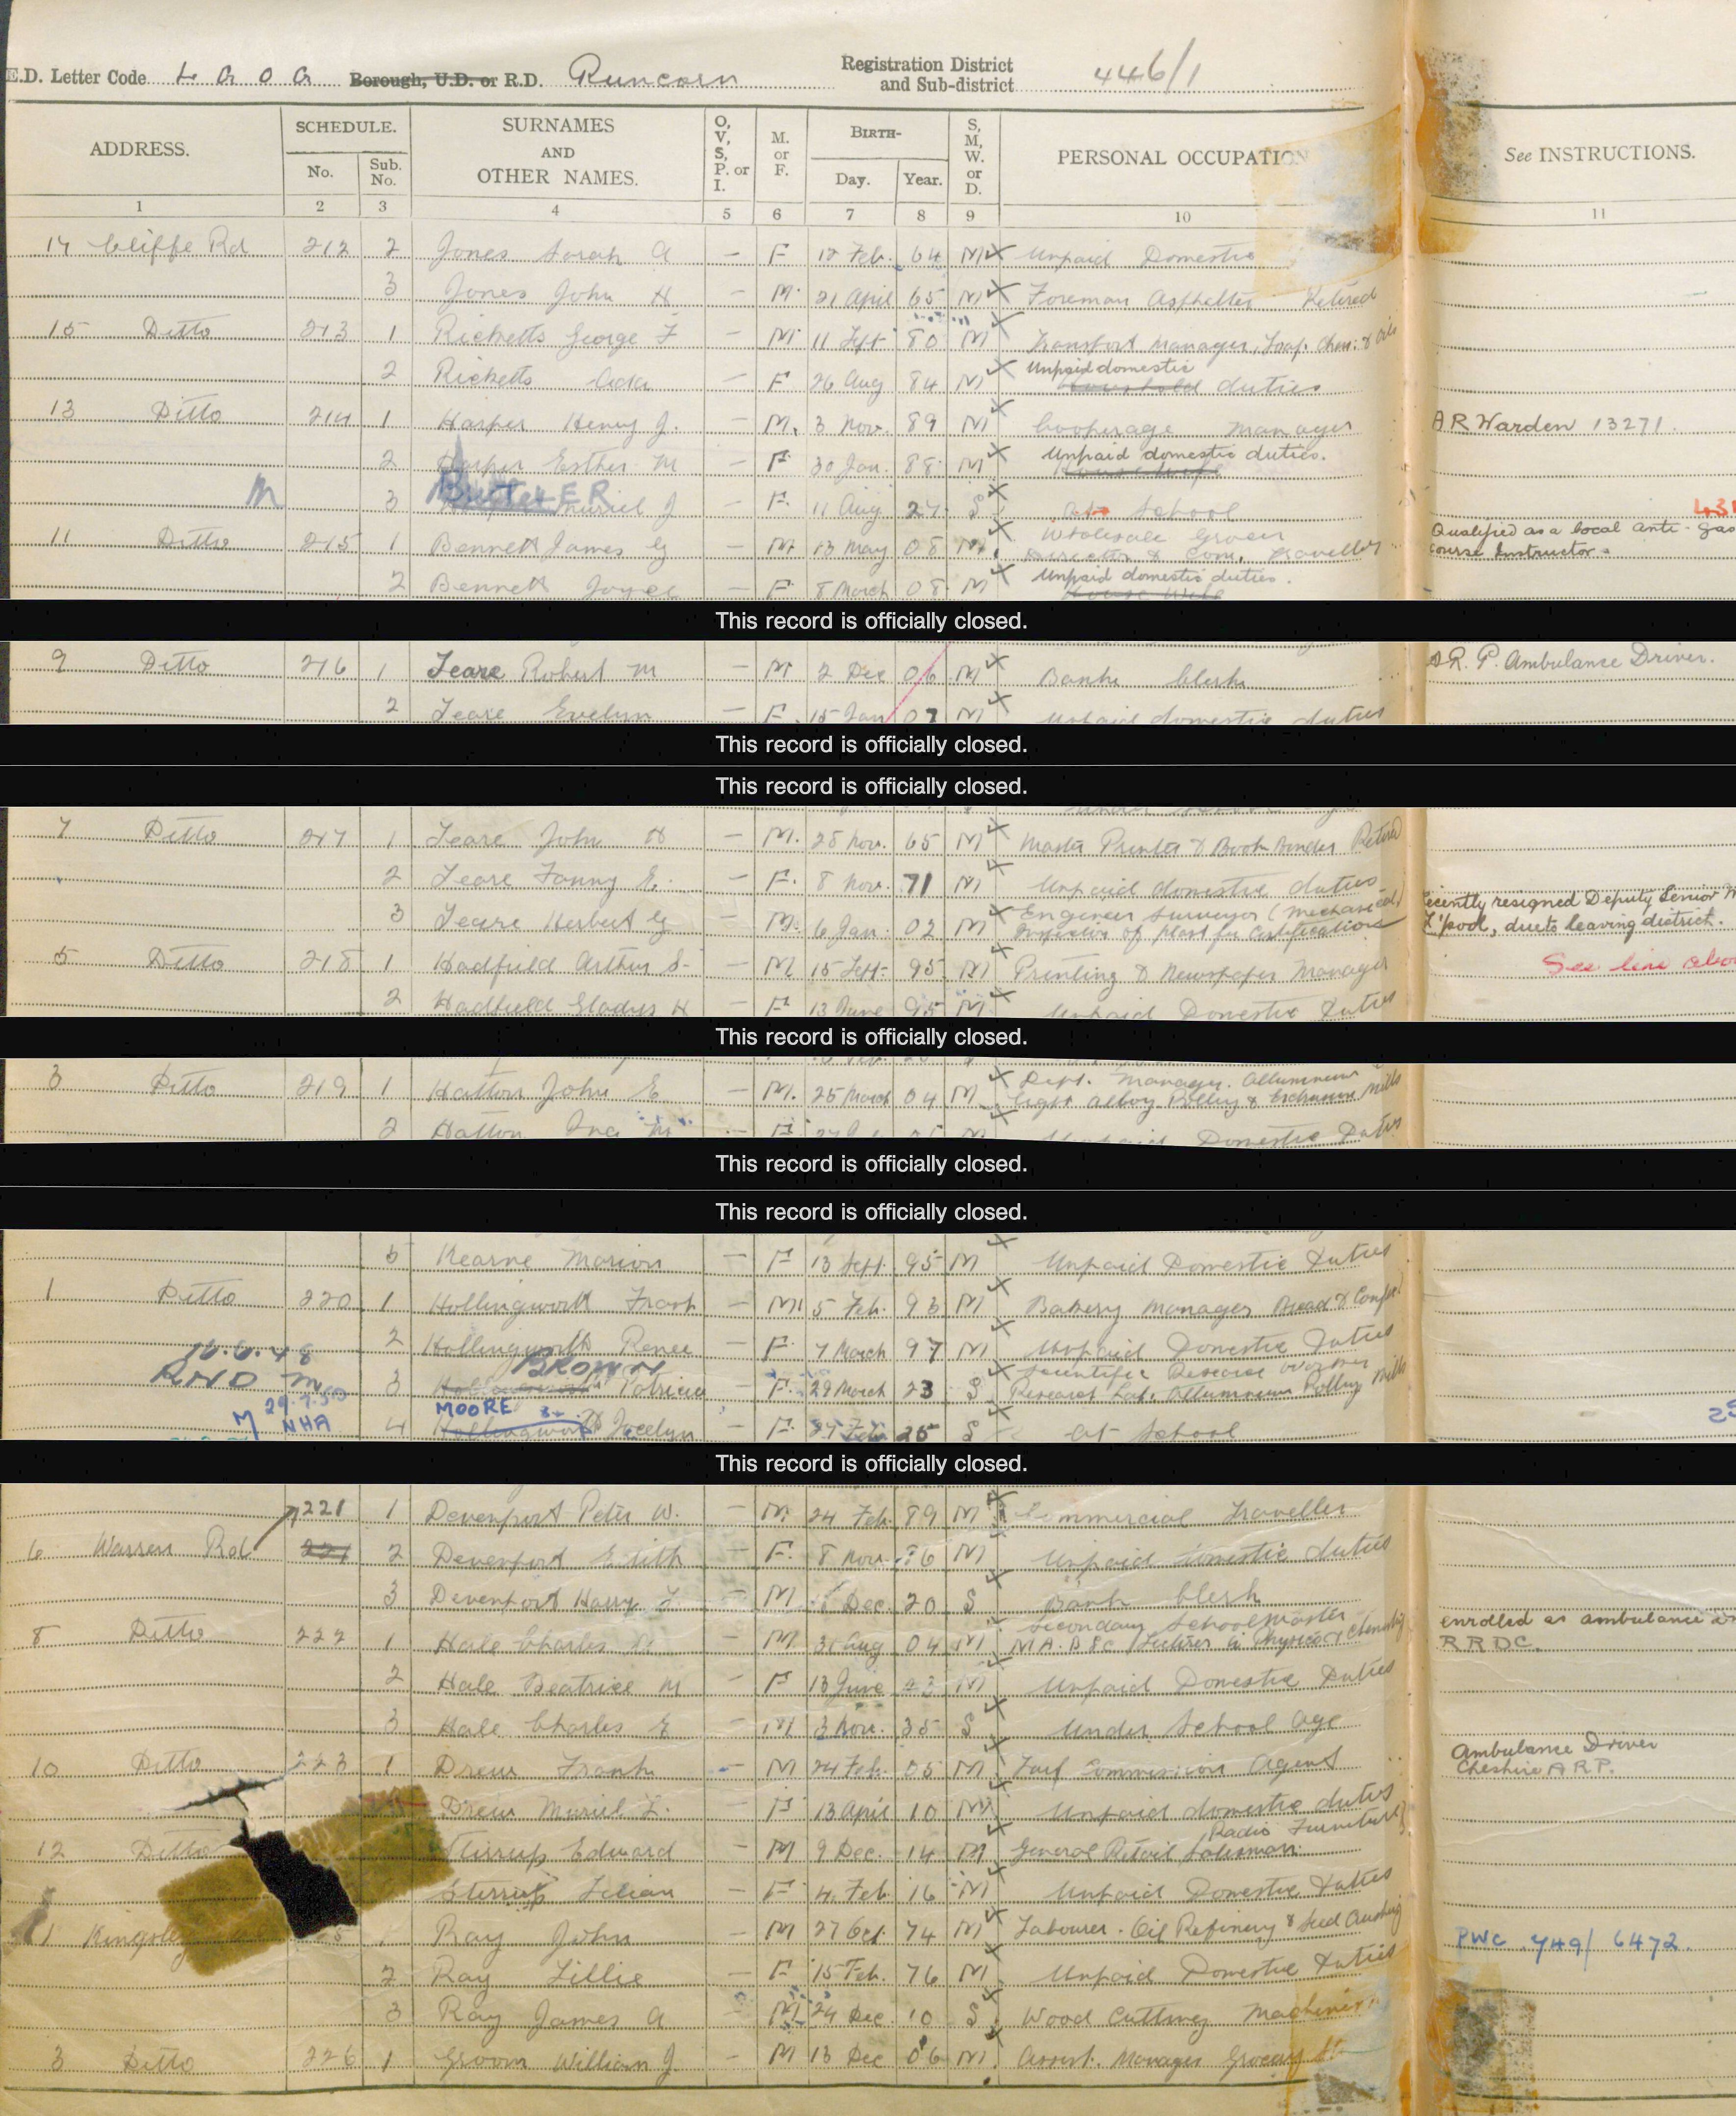 E.D. Letter Code L a o a Borough, U.D. or R.D. Runcorn Registration District and Sub-district 446/1
ADDRESS. SCHEDULE. No. Sub. No. SURNAMES AND OTHER NAMES. O, V, S, P. or I. M. or F. BIRTH- Day. Year. S, M, W. or D. PERSONAL OCCUPATION See INSTRUCTIONS.
1 2 3 4 5 6 7 8 9 10 11
17 Cliffe Rd 212 2 Jones Sarah A — F 12 Feb. 64 M Unpaid Domestic
3 Jones John H — M. 21 April 65 M Foreman Asphalter Retired
15 Ditto 213 1 Ricketts George F — M. 11 Sept 80 M Transport Manager, Soap. Chem: & Oils
2 Ricketts Ada — F 26 Aug 84 M Unpaid domestic duties
13 Ditto 214 1 Harper Henry J. — M. 3 Nov. 89 M Cooperage Manager A R Warden 13271.
2 Harper Esther M — F 30 Jan. 88 M Unpaid domestic duties. House Wife
M 3 Muriel J F. 11 Aug 27 S At School
11 Ditto 215 1 Bennett James G — M. 13 May 08 M. Wholesale Grocer Director & Com. Traveller Qualified as a local anti-gas course Instructor.
2 Bennett Joyce — F. 8 March 08. M Unpaid domestic duties. House Wife
This record is officially closed.
9 Ditto 216 1 Teare Robert M — M 2 Dec 06 M Bank Clerk A R. P. Ambulance Driver.
2 Teare Evelyn — F. 15 Jan 07 M Unpaid domestic duties
This record is officially closed.
This record is officially closed.
7 Ditto 217 1 Teare John H — M. 25 Nov. 65 M Master Printer & Book Binder Retired
2 Teare Fanny E. — F. 8 Nov. 71 M Unpaid domestic duties
3 Teare Herbert G — M. 6 Jan. 02 M Engineer Surveyor (Mechanical) Inspector of plant for Certification ecently resigned Deputy Senior L'pool, due to leaving district.
5 Ditto 218 1 Hadfield Arthur S — M 15 Sept. 95 M Printing & Newspaper Manager See line
2 Hadfield Gladys H — F 13 June 95 M Unpaid Domestic Duties
This record is officially closed.
3 Ditto 219 1 Hatton John E — M. 25 March 04 M Dept. Manager. Alluminum Light Alloy Rolling & Extrusion Mills
2 Hatton M — F M Unpaid Domestic Duties
This record is officially closed.
This record is officially closed.
5 Kearne Marion — F 13 Sept. 95 M Unpaid Domestic Duties
1 Ditto 220 1 Hollingworth Frank — M 5 Feb. 93 M Bakery Manager Bread & Conf.
2 Hollingworth Renee — F. 7 March 97 M Unpaid Domestic Duties
RHD M BROWN 3 Hollingworth Patricia — F. 29 March 23 S Scientific Research Research Lab. Alluminum Rolling Mills
M 29.7.50 NHA MOORE 4 Hollingworth Jocelyn — F. Feb 25 S At School
This record is officially closed.
221 1 Devenport Peter W. — M. 24 Feb. 89 M Commercial Traveller
6 Warren Rd 221 2 Devenport Edith — F. 8 Nov. M Unpaid domestic duties
3 Devenport Harry — M Dec. 20 S Bank Clerk
8 Ditto 222 1 Hale Charles — M 31 Aug 04 M Secondary Schoolmaster M A. B Sc. Lecturer in Physics & Chemistry enrolled as ambulance R R D C.
2 Hale Beatrice M — F 13 June M Unpaid Domestic Duties
3 Hale Charles E — M 3 Nov. 35 S Under School Age
10 Ditto 223 1 Drew Frank — M 24 Feb. 05 M Turf Commission Agent Ambulance Driver Cheshire A R P.
Drew Muriel — F 13 April 10 M Unpaid domestic duties
12 Ditto Stirrup Edward — M 9 Dec. 14 M General Retail Salesman (Radio Furniture)
Stirrup Lilian — F 4 Feb 16 M Unpaid Domestic Duties
1 Ray John — M 27 Oct. 74 M Labourer. Oil Refinery & Seed Crushing PWC 749/ 6472.
2 Ray Lillie — F 15 Feb. 76 M Unpaid Domestic Duties
3 Ray James A — M 24 Dec. 10 S Wood Cutting Machinist
3 Ditto 226 1 Groom William J. — M 13 Dec 06 M Assist. Manager Grocery